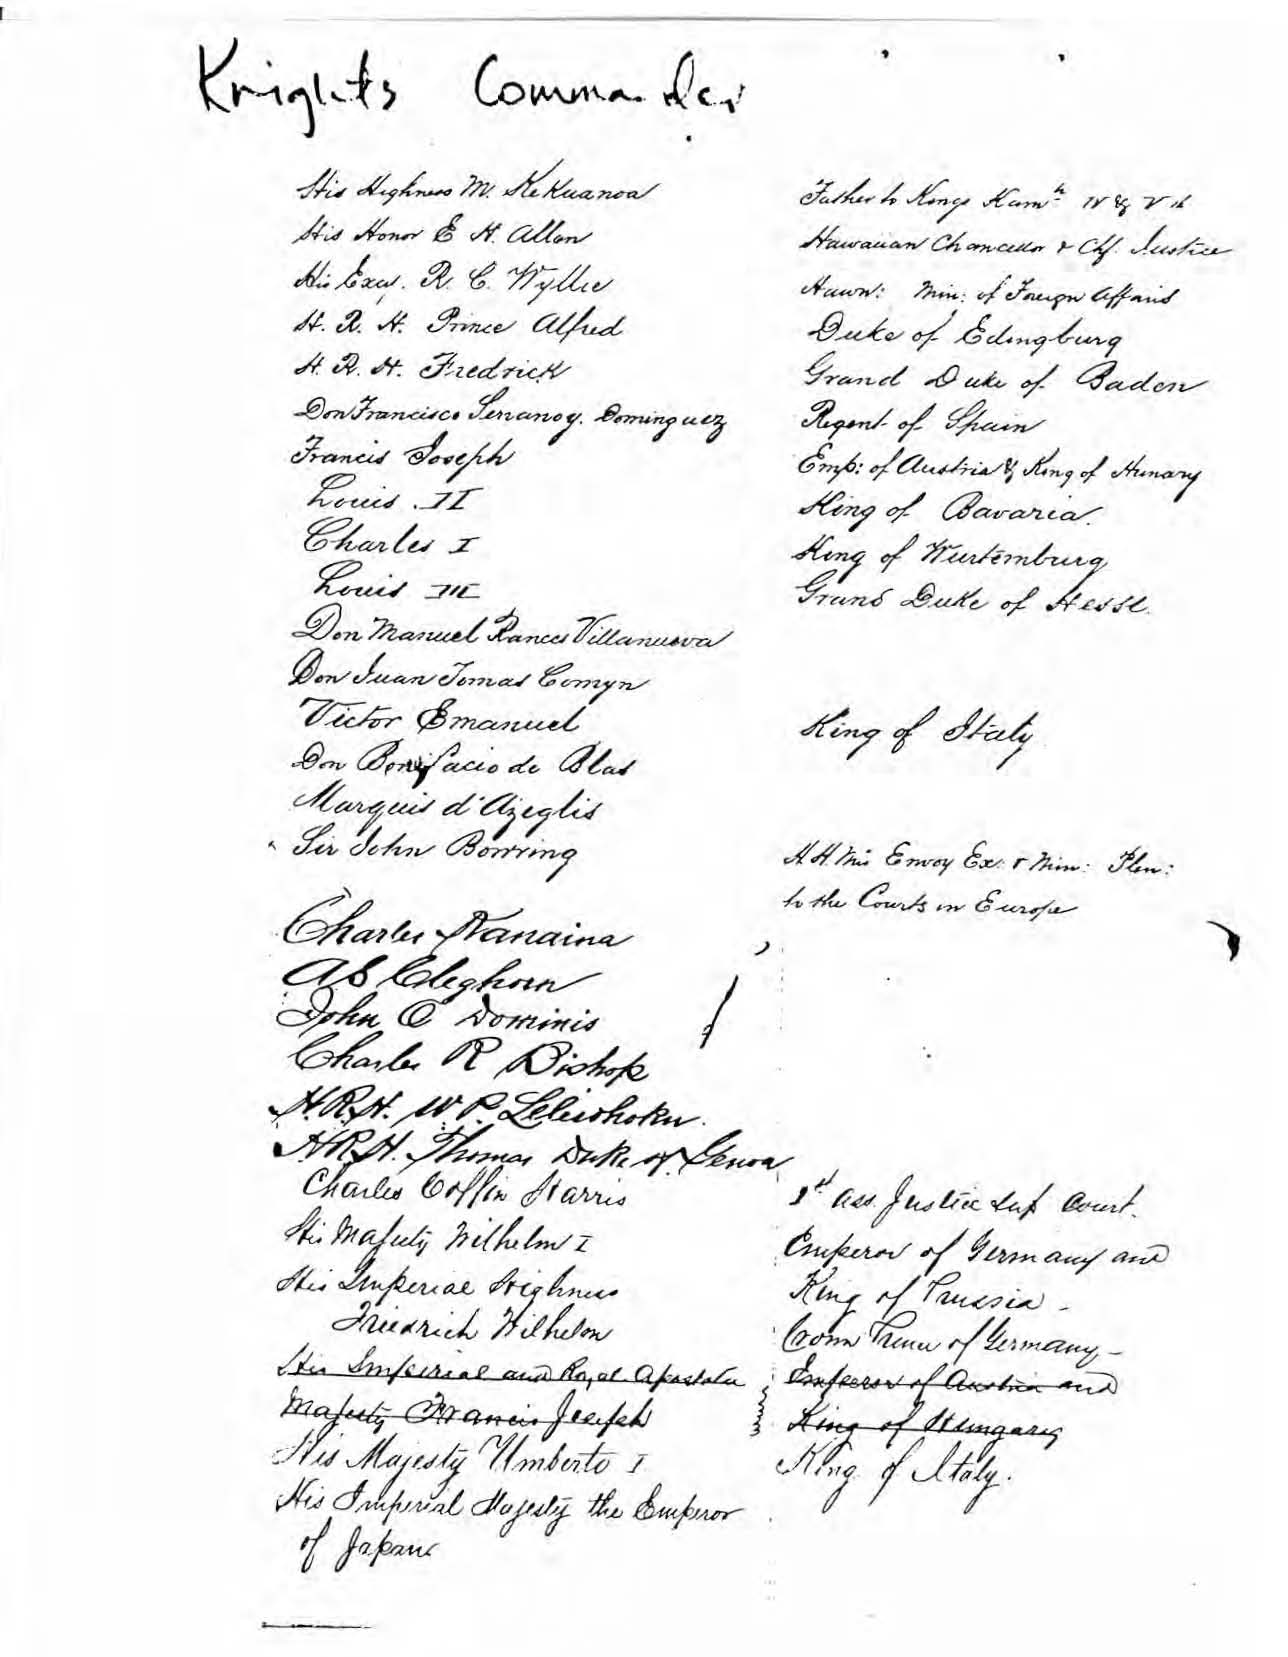 Knights Commander
His Highness M. KeKuanoa Father to Kings Kamh IV & Vth
His Honor E H. Allen Hawaiian Chancellor & Chf. Justice
His Excy. R. C. Wyllie Hawn: Min: of Foreign Affairs
H. R. H. Prince Alfred Duke of Edingburg
H. R. H. Fredrick Grand Duke of Baden
Don Francisco Serrano y. Dominguez Regent of Spain
Francis Joseph Emp: of Austria & King of Hunary
Louis II King of Bavaria.
Charles I King of Wurtemburg
Louis III Grand Duke of Hesse.
Don Manuel Rances Villanueva
Don Juan Tomas Comyn
Victor Emanuel King of Italy
Don Bonifacio de Blas
Marquis d'Azeglis
Sir John Bowring H.H.Ms Envoy Ex: & Min: Plen:
to the Courts in Europe
Charles Kanaina
A S Cleghorn
John O Dominis
Charles R Bishop
H.R.H. W P. Leleiohoku.
H.R.H. Thomas Duke of Genoa
Charles Coffin Harris 1st Ass. Justice Sup Court.
His Majesty Wilhelm I Emperor of Germany and
His Imperial Highness King of Prussia -
Friedrich Wilhelm Crown Prince of Germany -
His Imperial and Royal Apostolic Emperor of Austria and
Majesty Francis Joseph King of Hungary
His Majesty Umberto I King of Italy.
His Imperial Majesty the Emperor
of Japan